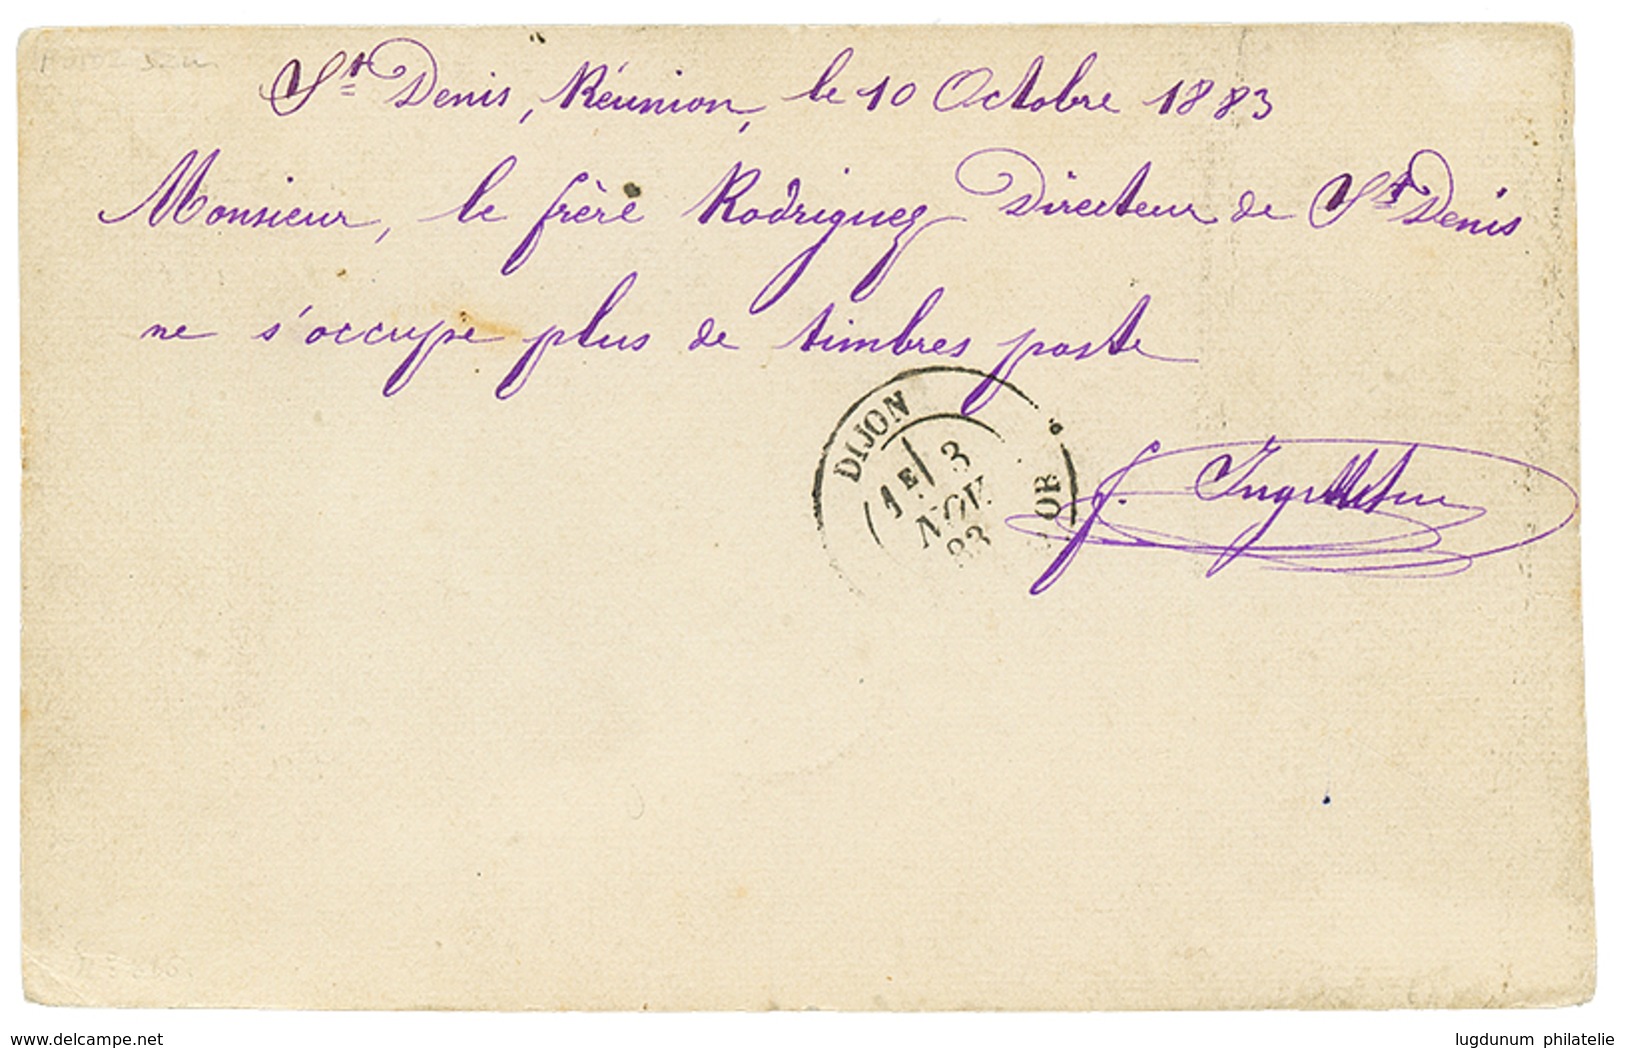 St Denis, Réunion, le 10 Octobre 1883
Monsieur, le frère Rodriguez Directeur de St Denis
ne s'occupe plus de timbres poste
DIJON
1E 3
NOV
83
f.
www.delcampe.net
lugdunum philatelie